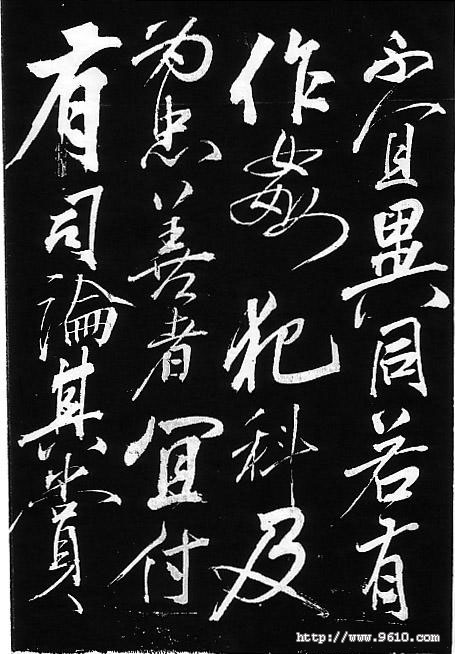 不宜異同若有
作姦犯科及
為忠善者宜付
有司論其賞
http://www.9610.com/